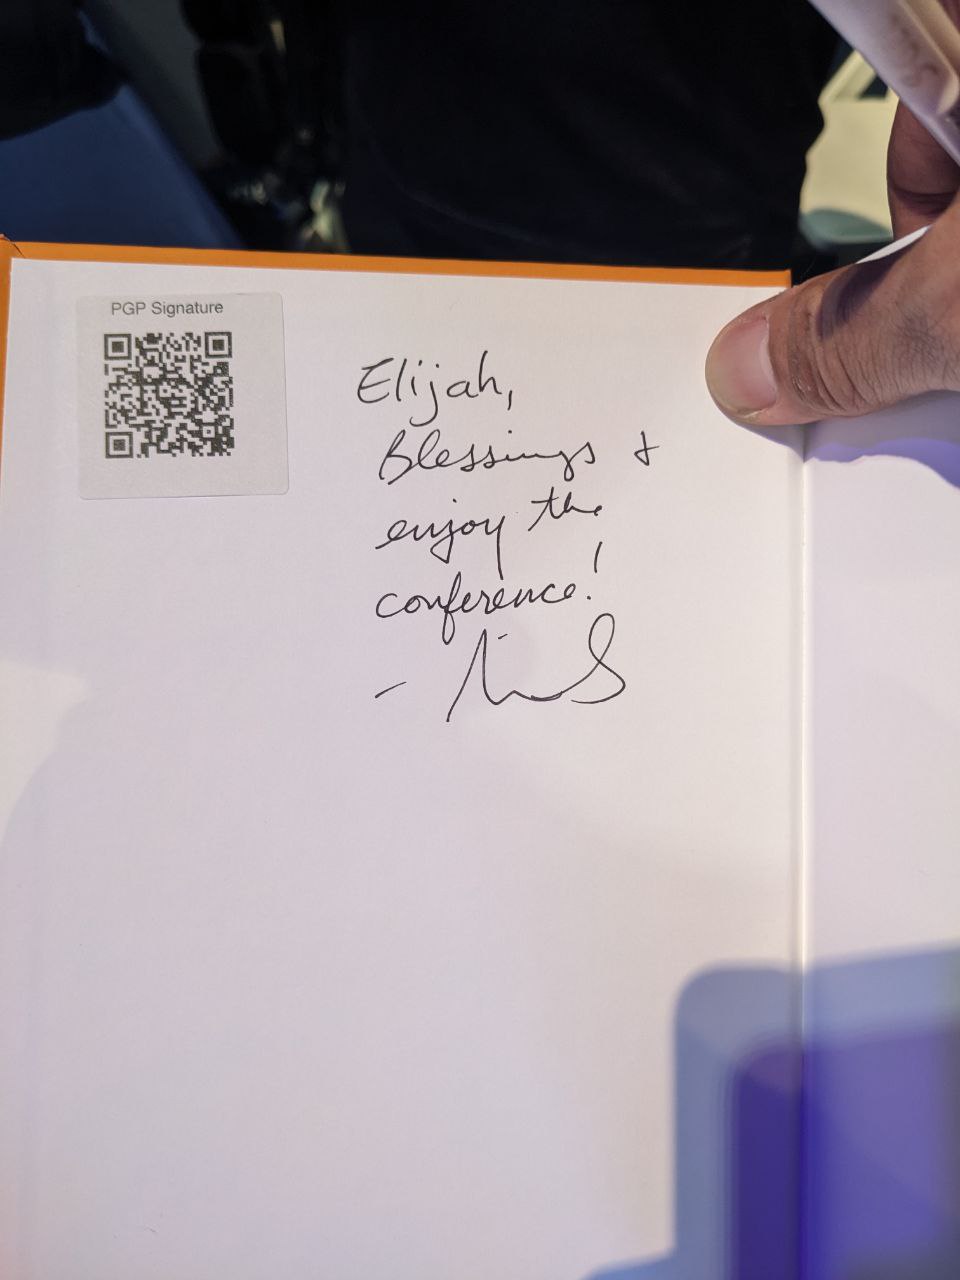 PGP Signature
Elijah,
Blessings &
enjoy the
conference!